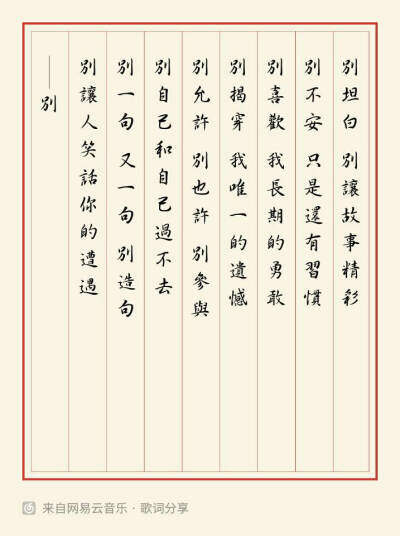 別坦白 別讓故事精彩
別不安 只是還有習慣
別喜歡 我長期的勇敢
別揭穿 我唯一的遺憾
別允許 別也許 別參與
別自己和自己過不去
別一句 又一句 別造句
別讓人笑話你的遭遇
——別
来自网易云音乐·歌词分享